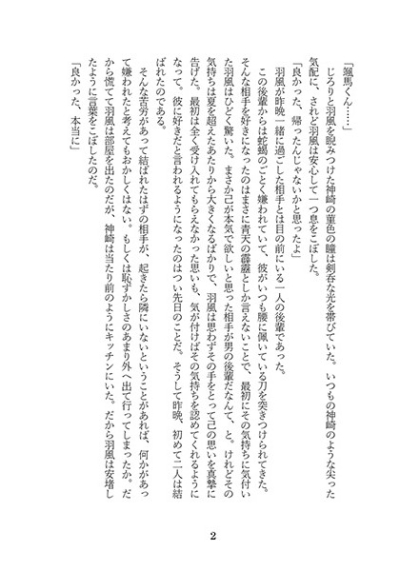 「颯馬くん……」
　じろりと羽風を睨みつけた神崎の菫色の瞳は剣呑な光を帯びていた。いつもの神崎のような尖った
気配に、されど羽風は安心して一つ息をこぼした。
「良かった、帰ったんじゃないかと思ったよ」
　羽風が昨晩一緒に過ごした相手とは目の前にいる一人の後輩であった。
　この後輩からは蛇蝎のごとく嫌われていて、彼がいつも腰に佩いている刀を突きつけられてきた。
そんな相手を好きになったのはまさに青天の霹靂としか言えないことで、最初にその気持ちに気付い
た羽風はひどく驚いた。まさか己が本気で欲しいと思った相手が男の後輩だなんて、と。けれどその
気持ちは夏を超えたあたりから大きくなるばかりで、羽風は思わずその手をとって己の思いを真摯に
告げた。最初は全く受け入れてもらえなかった思いも、気が付けばその気持ちを認めてくれるように
なって。彼に好きだと言われるようになったのはつい先日のことだ。そうして昨晩、初めて二人は結
ばれたのである。
　そんな苦労があって結ばれたはずの相手が、起きたら隣にいないということがあれば、何かがあっ
て嫌われたと考えてもおかしくはない。もしくは恥ずかしさのあまり外へ出て行ってしまったか。だ
から慌てて羽風は部屋を出たのだが、神崎は当たり前のようにキッチンにいた。だから羽風は安堵し
たように言葉をこぼしたのだ。
「良かった、本当に」
2